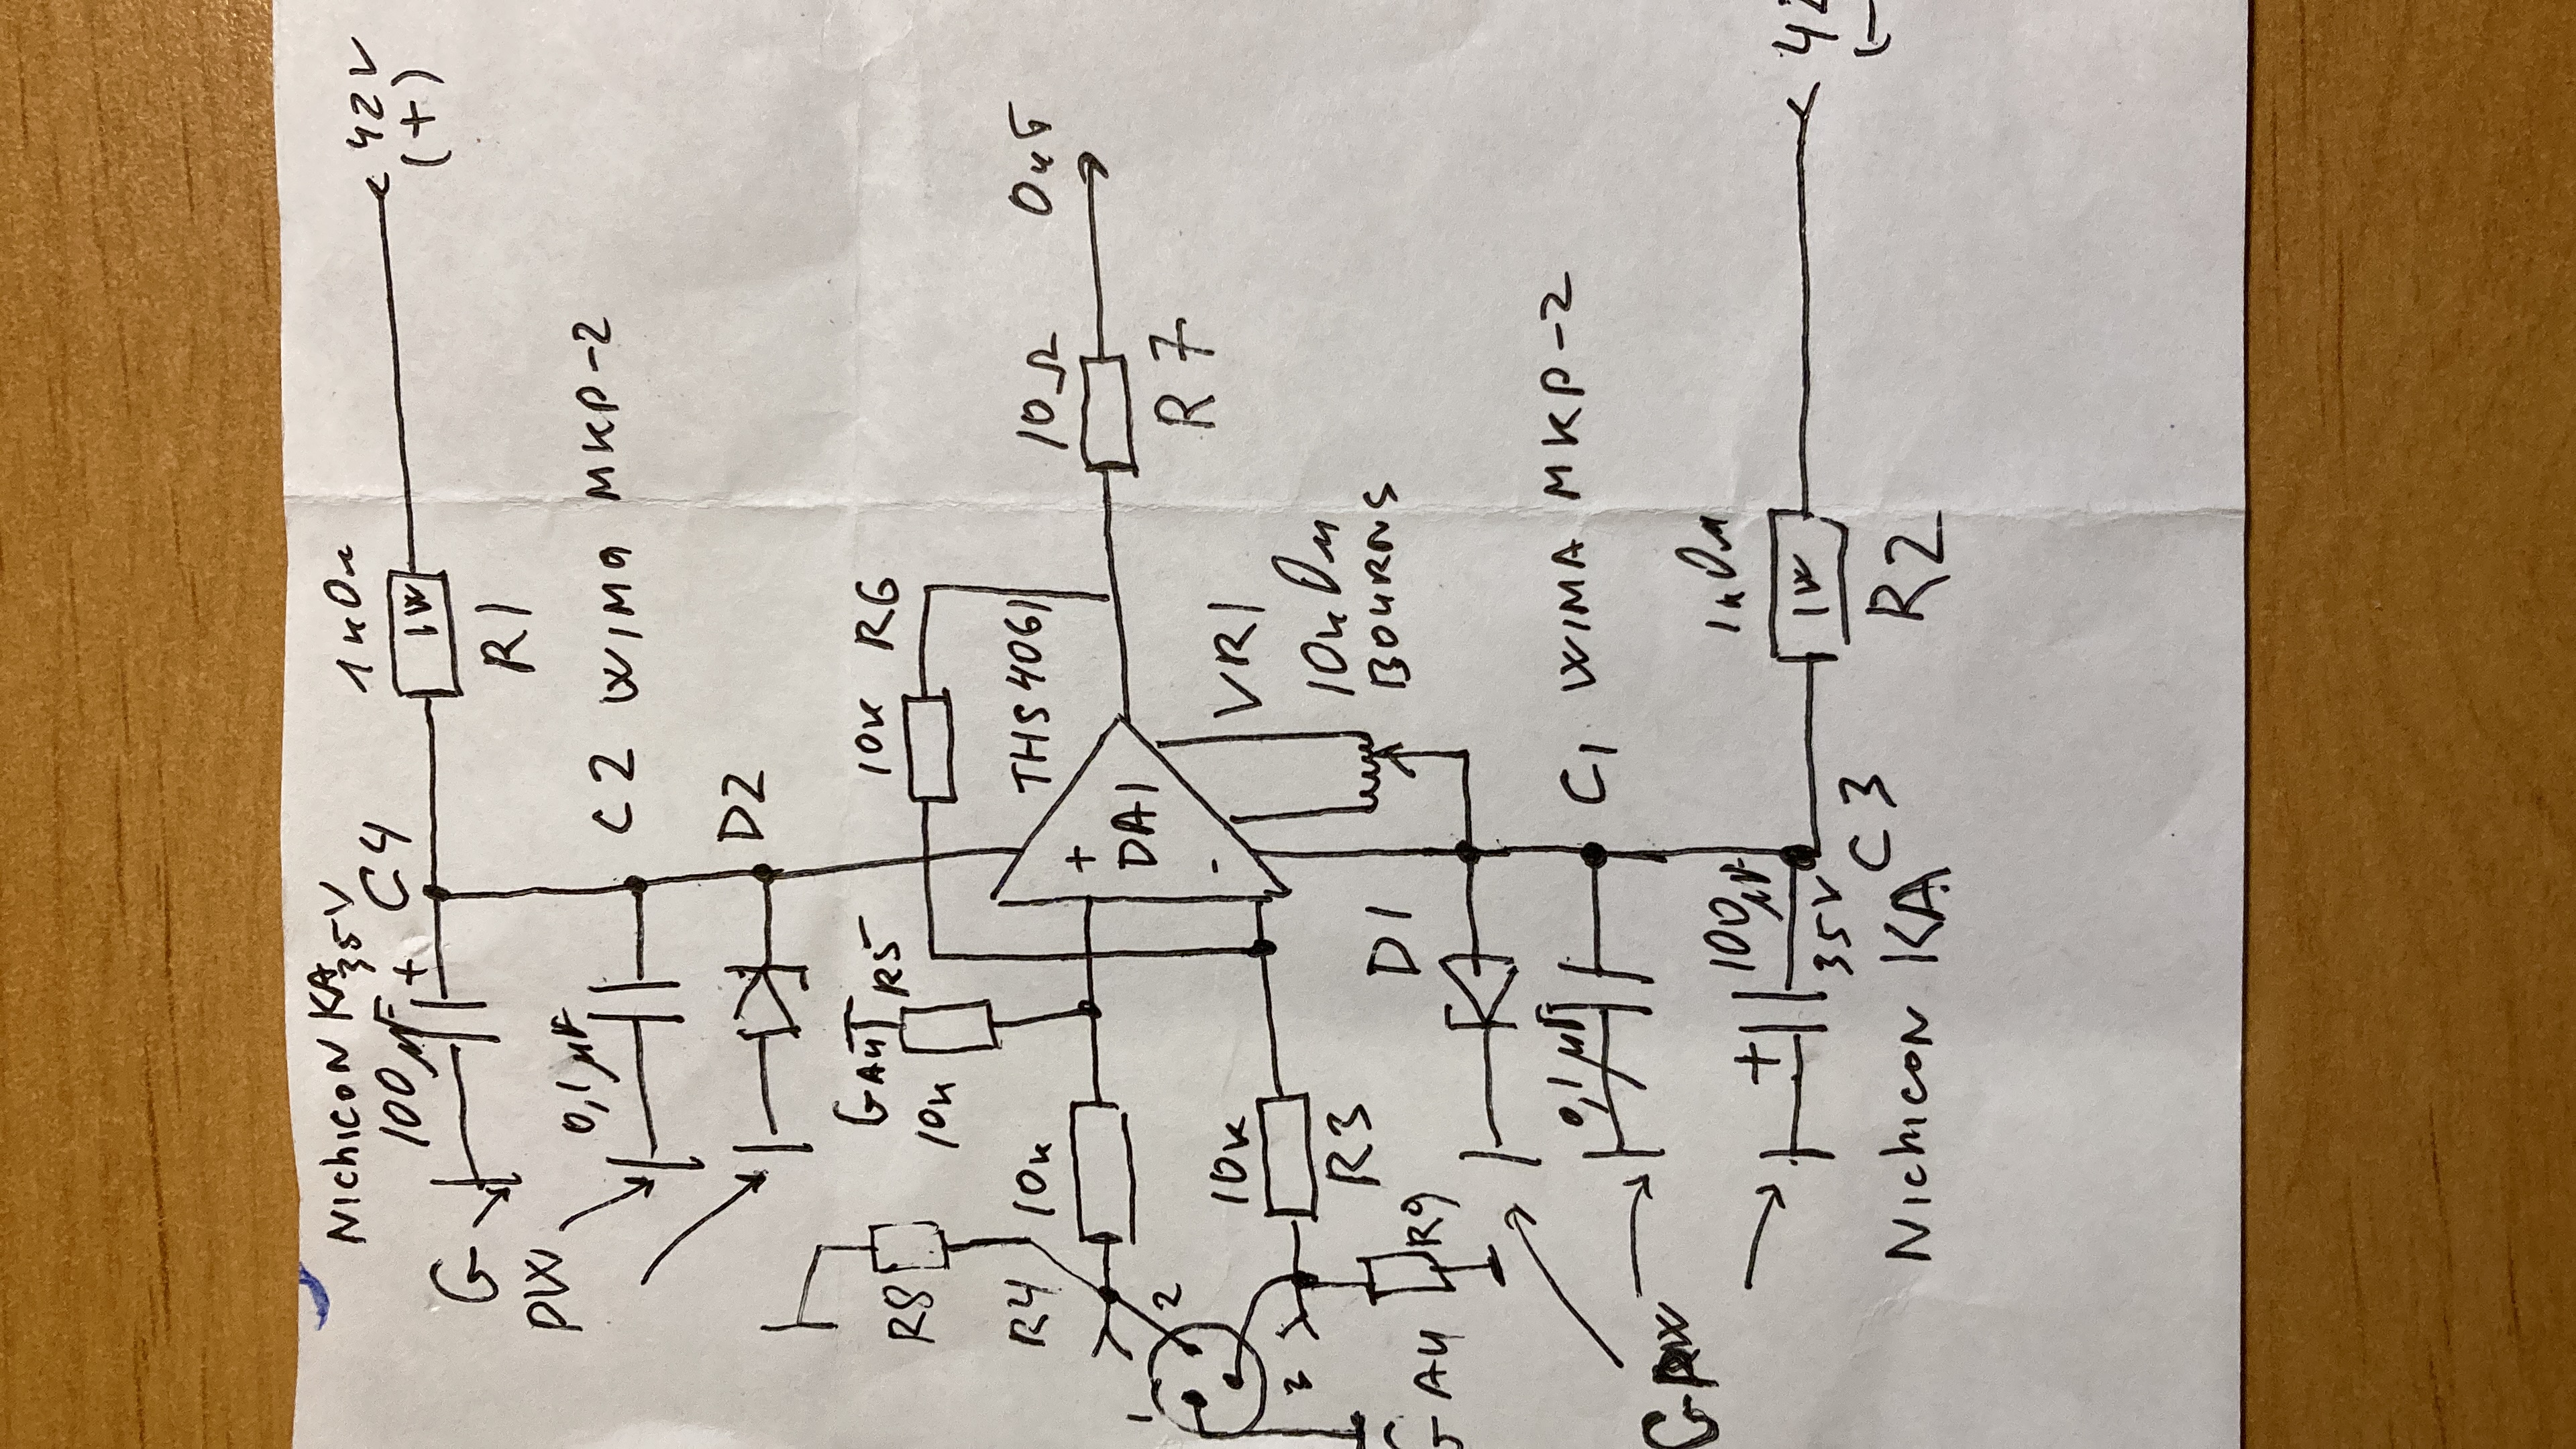 42V
(+)
1кОм
1W
R1
Nichicon KA
100µF 35V
+
C4
G
PW
0,1µF
C2 WIMA MKP-2
D2
10к
R6
THS4061
+
DA1
-
10Ω
R7
Out
VR1
10кОм
BOURNS
GAU
R5
10к
R8
R4
10к
10к
R3
R9
1
2
GAU
D1
0,1µF
C1 WIMA MKP-2
GPW
100µF
35V
+
C3
Nichicon KA
1кОм
1W
R2